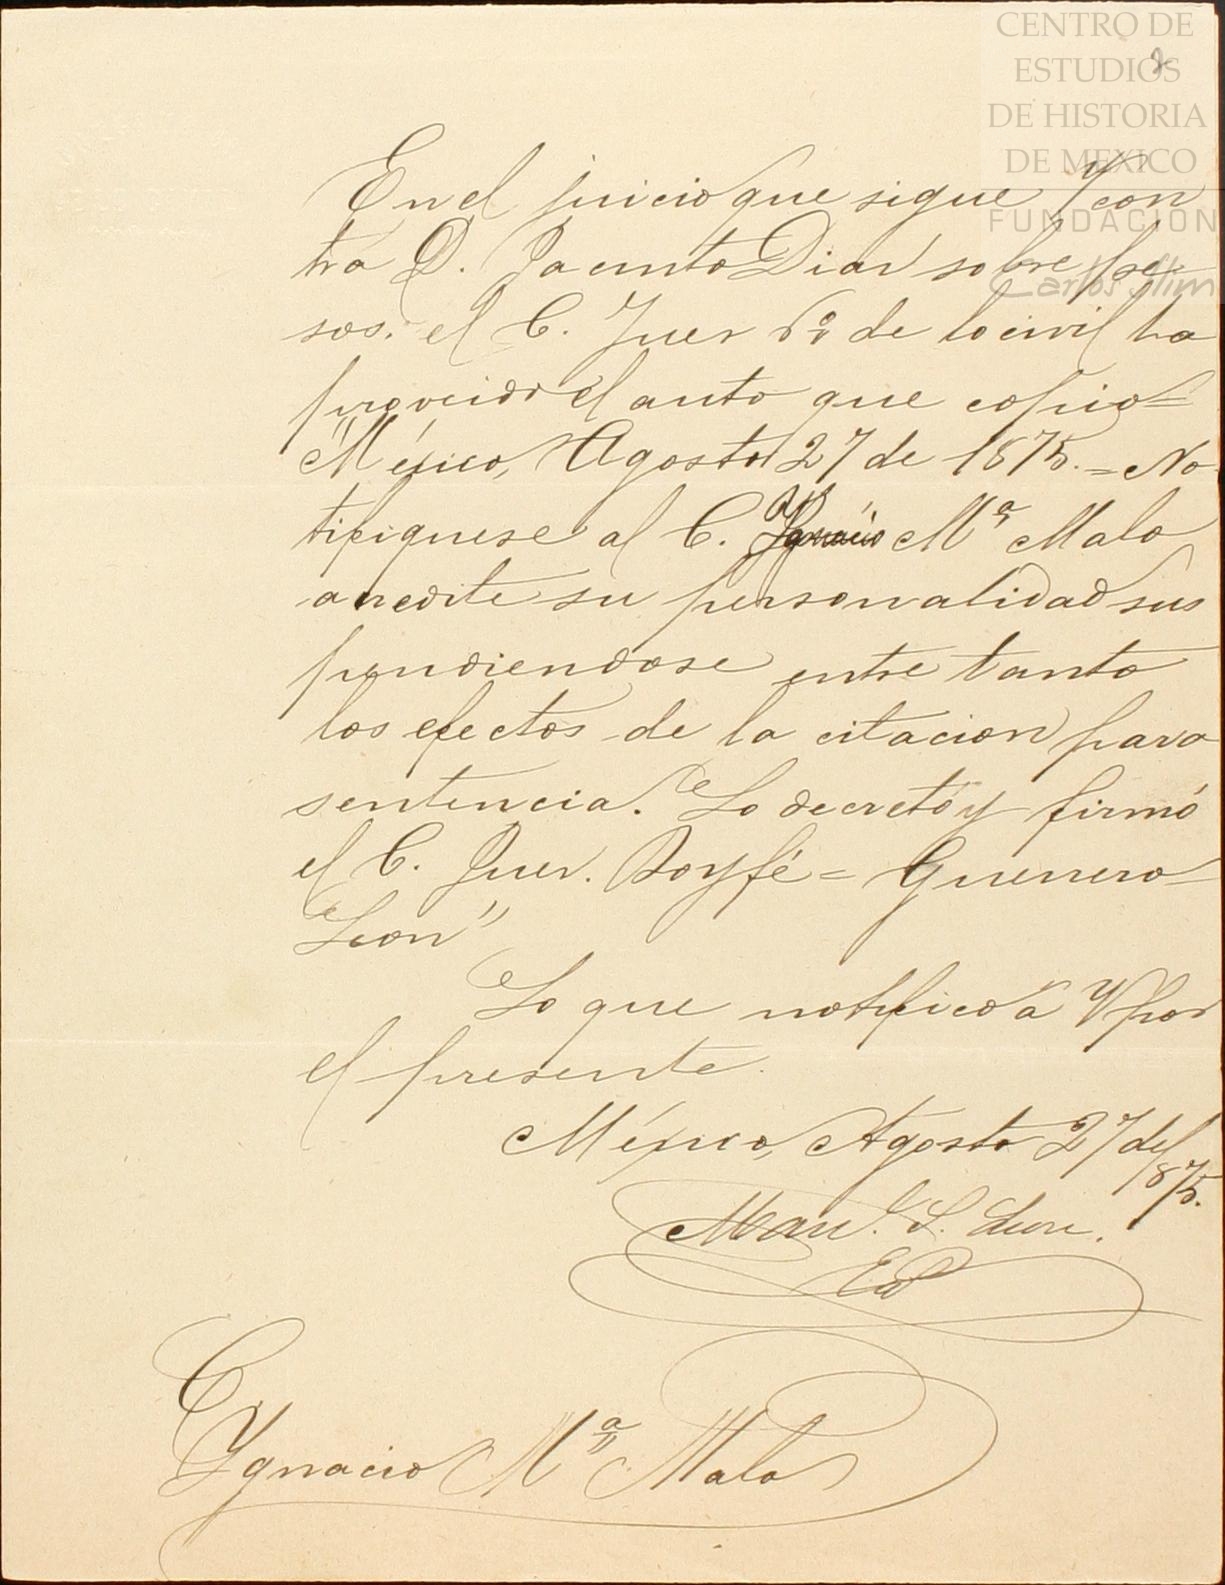 CENTRO DE
ESTUDIOS
DE HISTORIA
DE MEXICO
FUNDACIÓN
Carlos Slim
En el juicio que sigue V con
tra D. Jacinto Diaz sobre pe
sos. el C. Juez 6º de lo civil ha
proveido el auto que copio=
"México, Agosto 27 de 1875.=No
tifiquese al C. Ygnacio Mª Malo
acredite su personalidad sus
pendiendose entre tanto
los efectos de la citacion para
sentencia. Lo decretó y firmó
el C. Juez. Doy fé= Guerrero=
Leon"
Lo que notifico á V por
el presente.
México, Agosto 27 de 1
875.
Man. S. Leon.
C
Ygnacio Mª Malo